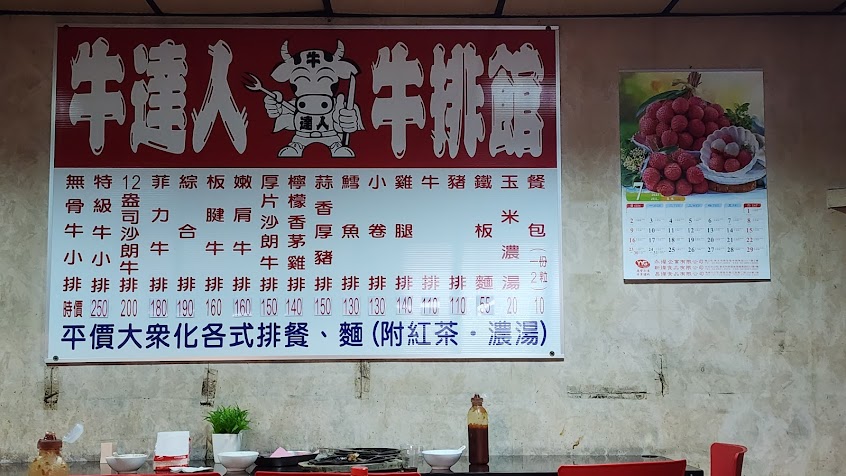 牛達人 牛排館
牛
達人
無骨牛小排 時價
特級牛小排 250
12盎司沙朗牛排 200
菲力牛排 180
綜合排 190
板腱牛排 160
嫩肩牛排 160
厚片沙朗牛排 150
檸檬香茅雞排 140
蒜香厚豬排 150
鱈魚排 130
小卷排 130
雞腿排 140
牛排 110
豬排 110
鐵板麵 55
玉米濃湯 20
餐包(一份2粒) 10
平價大眾化各式排餐、麵(附紅茶・濃湯)
7
1
2 3 4 5 6 7 8
9 10 11 12 13 14 15